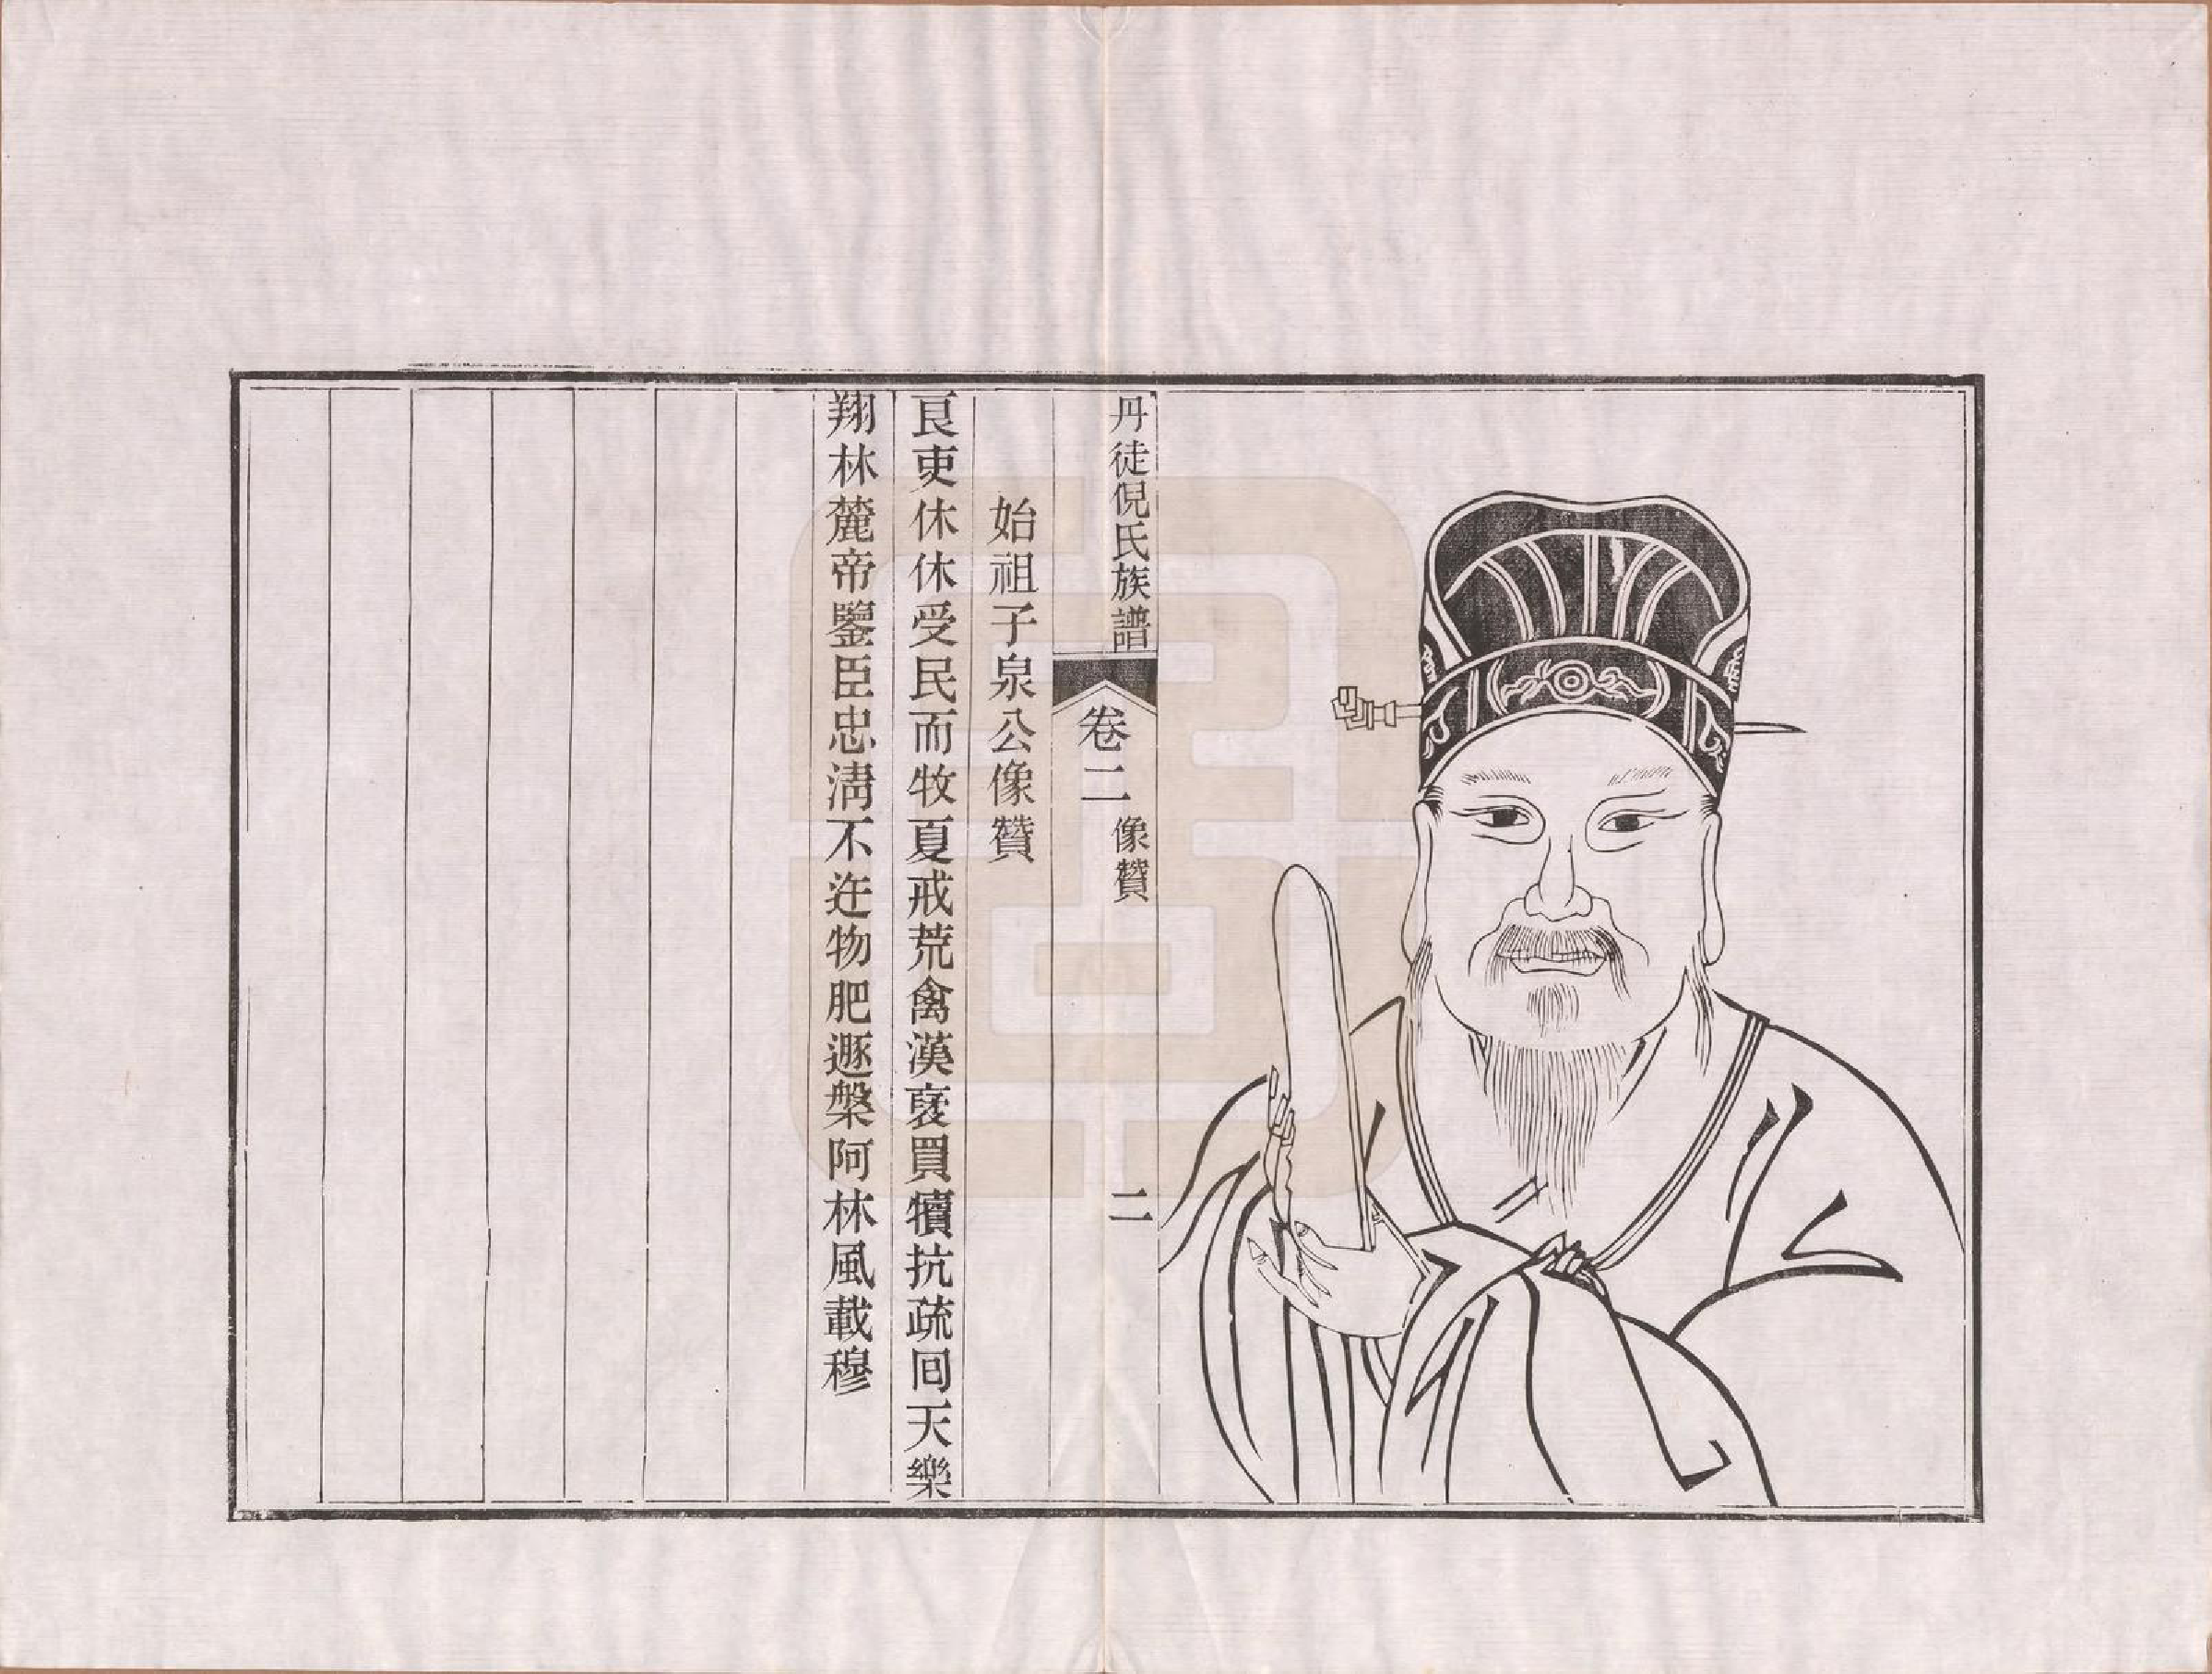 丹徒倪氏族譜
卷二
像贊
二
始祖子泉公像贊
良吏休休受民而牧夏戒荒禽漢襃買犢抗疏囘天樂
翔林麓帝鑒臣忠淸不迕物肥遯槃阿林風載穆